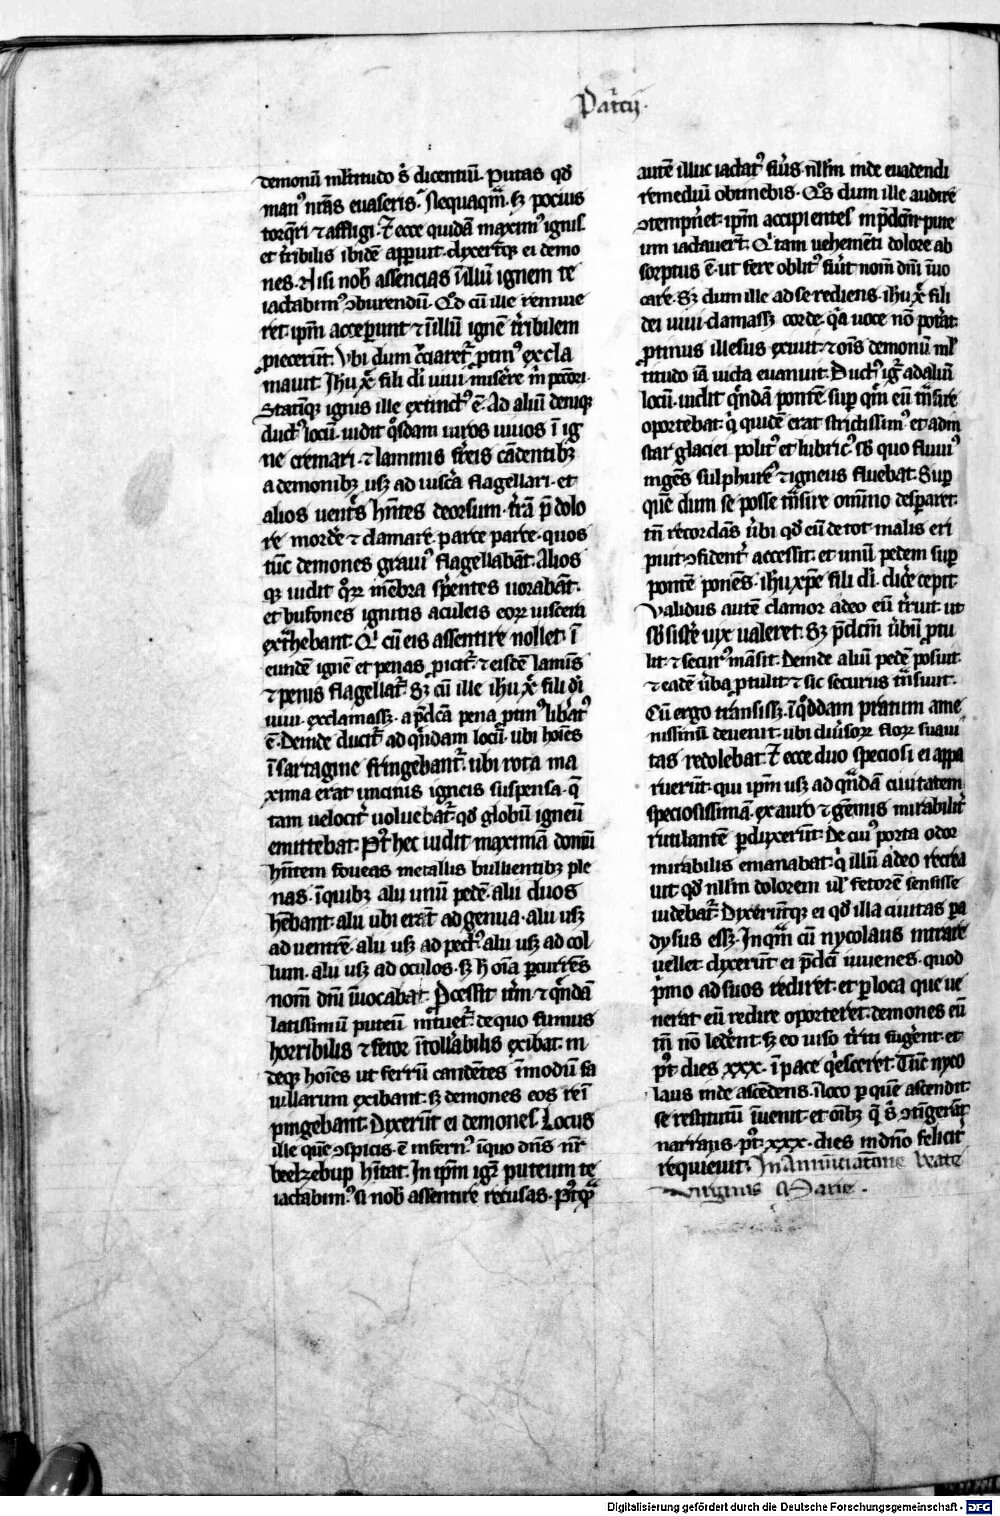 Patcij.
demonū ml'titudo s̄ dicentiū. Putas qd̓
man⁹ nr̄as euaseris. Neq̄uaq̄m. sꝫ pocius
torq̄ri ⁊ affligi. Et ecce quidā maxim⁹ ignis
et t̓ribilis ibidē apparuit. dixer̄tqꝫ ei demo
nes. Nisi nob̓ assencias ī illū ignem te
iactabim⁹ ꝯburendū. Qd̓ cū ille rennue
ret. ip̄m acceperunt ⁊ ī illū ignē t̓ribilem
ꝓiecerūt. Vbi dum c̓ciaret̄ ꝓtin⁹ excla
mauit. Ihū xp̄e fili di uiui. miserere m̄ pctōri.
Statīqꝫ ignis ille extinct⁹ ē. Ad aliū deniqꝫ
duct⁹ locū. uidit q̄sdam uiros uiuos ī ig
ne cremari. ⁊ laminis ferreis cādentibꝫ
a demonibꝫ usqꝫ ad uiscera flagellari. et
alios uentres hn̄tes deorsum. t̓rā p̄ dolo
re mordere ⁊ clamare parce parce. quos
tūc demones graui⁹ flagellabāt. Alios
qꝫ uidit q̄rꝫ mēbra s̓pentes uorabāt.
et bufones ignitis aculeis eorꝫ uiscera
ext̓hebant. Qi cū eis assentire nollet. ī
eundē ignē et penas ꝓicit̄. ⁊ eisdē lamīs
⁊ penis flagellat̄. Sꝫ cū ille ihū xp̄e fili di
uiui. exclamassꝫ. a p̄dc̄a pena ꝓtin⁹ libat⁹
ē. Deinde ducit̄ ad q̄ndam locū. ubi hoīes
ī sartagine fringebant̄. ubi rota ma
xima erat uncinis igneis suspensa. q̄
tam uelocit̄ uoluebat̄. qd̓ globū igneū
emittebat. Pt̓ hec uidit maximā domū
hn̄tem foueas metallis bullientibꝫ ple
nas. ī quibꝫ alii unū pedē. alii duos
hēbant. alii ubi erāt ad genua. alii usqꝫ
ad uentrē. alii usqꝫ ad pect⁹. alii usqꝫ ad col
lum. alii usqꝫ ad oculos. sꝫ h̄ oīa ꝑcurrēs
nom̄ dn̄i īuocabat. Pcessit it̄m ⁊ q̄ndā
latissimū puteū intuet̄. de quo fumus
horribilis ⁊ fetor ītoll̓abilis exibat. in
deqꝫ hoīes ut ferrū candētes ī modiū fa
uillarum exibant. sꝫ demones eos re ī
pingebant. Dixerūt ei demones. Locus
ille quē ꝯspicis. ē infern⁹. ī quo dn̄s nr̄
beelzebup hītat. In ip̄m igr̄ puteum te
iactabim⁹. si nob̓ assentire recusas. Pt̓q̄
autē illuc iactat⁹ fiūs. nll'm inde euadendi
remediū obtinebis. Qs dum ille audire
ꝯtempn̄et. ip̄m accipientes in p̄dc̄m pute
um iactauert̄. Qi tam uehementi dolore ab
sorptus ē. ut fere oblit⁹ fiūt nom̄ dn̄i īuo
care. Sꝫ dum ille ad se rediens. ihū xp̄e fili
dei uiui. clamassꝫ corde. qa uoce nō potat.
ꝓtinus illesus exiuit. ⁊ oīs demonū ml'
titudo iā uicta euanuit. Duct⁹ igr̄ ad aliū
locū. uidit q̄ndā pontē sup q̄m eū trāsire
oportebat. qi quidē erat strictissim⁹. et ad in
star glaciei. polit⁹ et lubric⁹. sb̓ quo fluui⁹
ingēs sulphure⁹ ⁊ igneus fluebat. Sup
quē dum se posse trāsire omnino desperaret.
tn̄ recordās ūbi qd̓ eū de tot malis eri
puit. ꝯfident̄ accessit. et unū pedem sup
pontē ponēs. ihū xp̄e fili di. dicere cepit.
Validus autē clamor adeo eū t̓ruit. ut
sb̓sistere uix ualeret. Sꝫ p̄dcm̄ ūbū ꝓtu
lit. ⁊ secur⁹ māsit. Deinde aliū pedē posuit.
⁊ eadē ūba ꝓtulit. ⁊ sic securus trāsiuit.
Cū ergo trānsissꝫ. ī q̄ddam pratum ame
nissimū deuenit. ubi diūsorꝫ florꝫ suaui
tas redolebat. Et ecce duo speciosi ei appa
ruerūt. qui ip̄m usqꝫ ad q̄ndā ciuitatem
speciosissimā. ex auro ⁊ gēmis mirabilit̄
rutilantē perduxerūt. De cui⁹ porta odor
mirabilis emanabat. qi illū adeo recrea
uit. qd̓ nll'm dolorem ul' fetorē sensisse
uidebat̄. Dixerūtqꝫ ei qd̓ illa ciuitas pa
dysus essꝫ. In q̄m cū nycolaus intrare
uellet. dixerūt ei p̄dc̄i iuuenes. quod
p̄mo ad suos rediret. et ꝑ loca que ue
nerat eū redire oporteret. demones eū
tn̄ nō leder̄ent. sꝫ eo uiso t̓riti fuger̄ent. et
pt̓ dies xxx. ī pace q̓esceret. Tūc nyco
laus inde ascēdens. ī loco ꝑ quē ascendit.
se restitutū īuenit. et oībꝫ q̄ s̄ ꝯtiger̄ūt
narratis. pt̓ xxx. dies in dn̄o felicit̄
requieuit. In Annūciatione beate
virginis Marie.
Digitalisierung gefördert durch die Deutsche Forschungsgemeinschaft - DFG